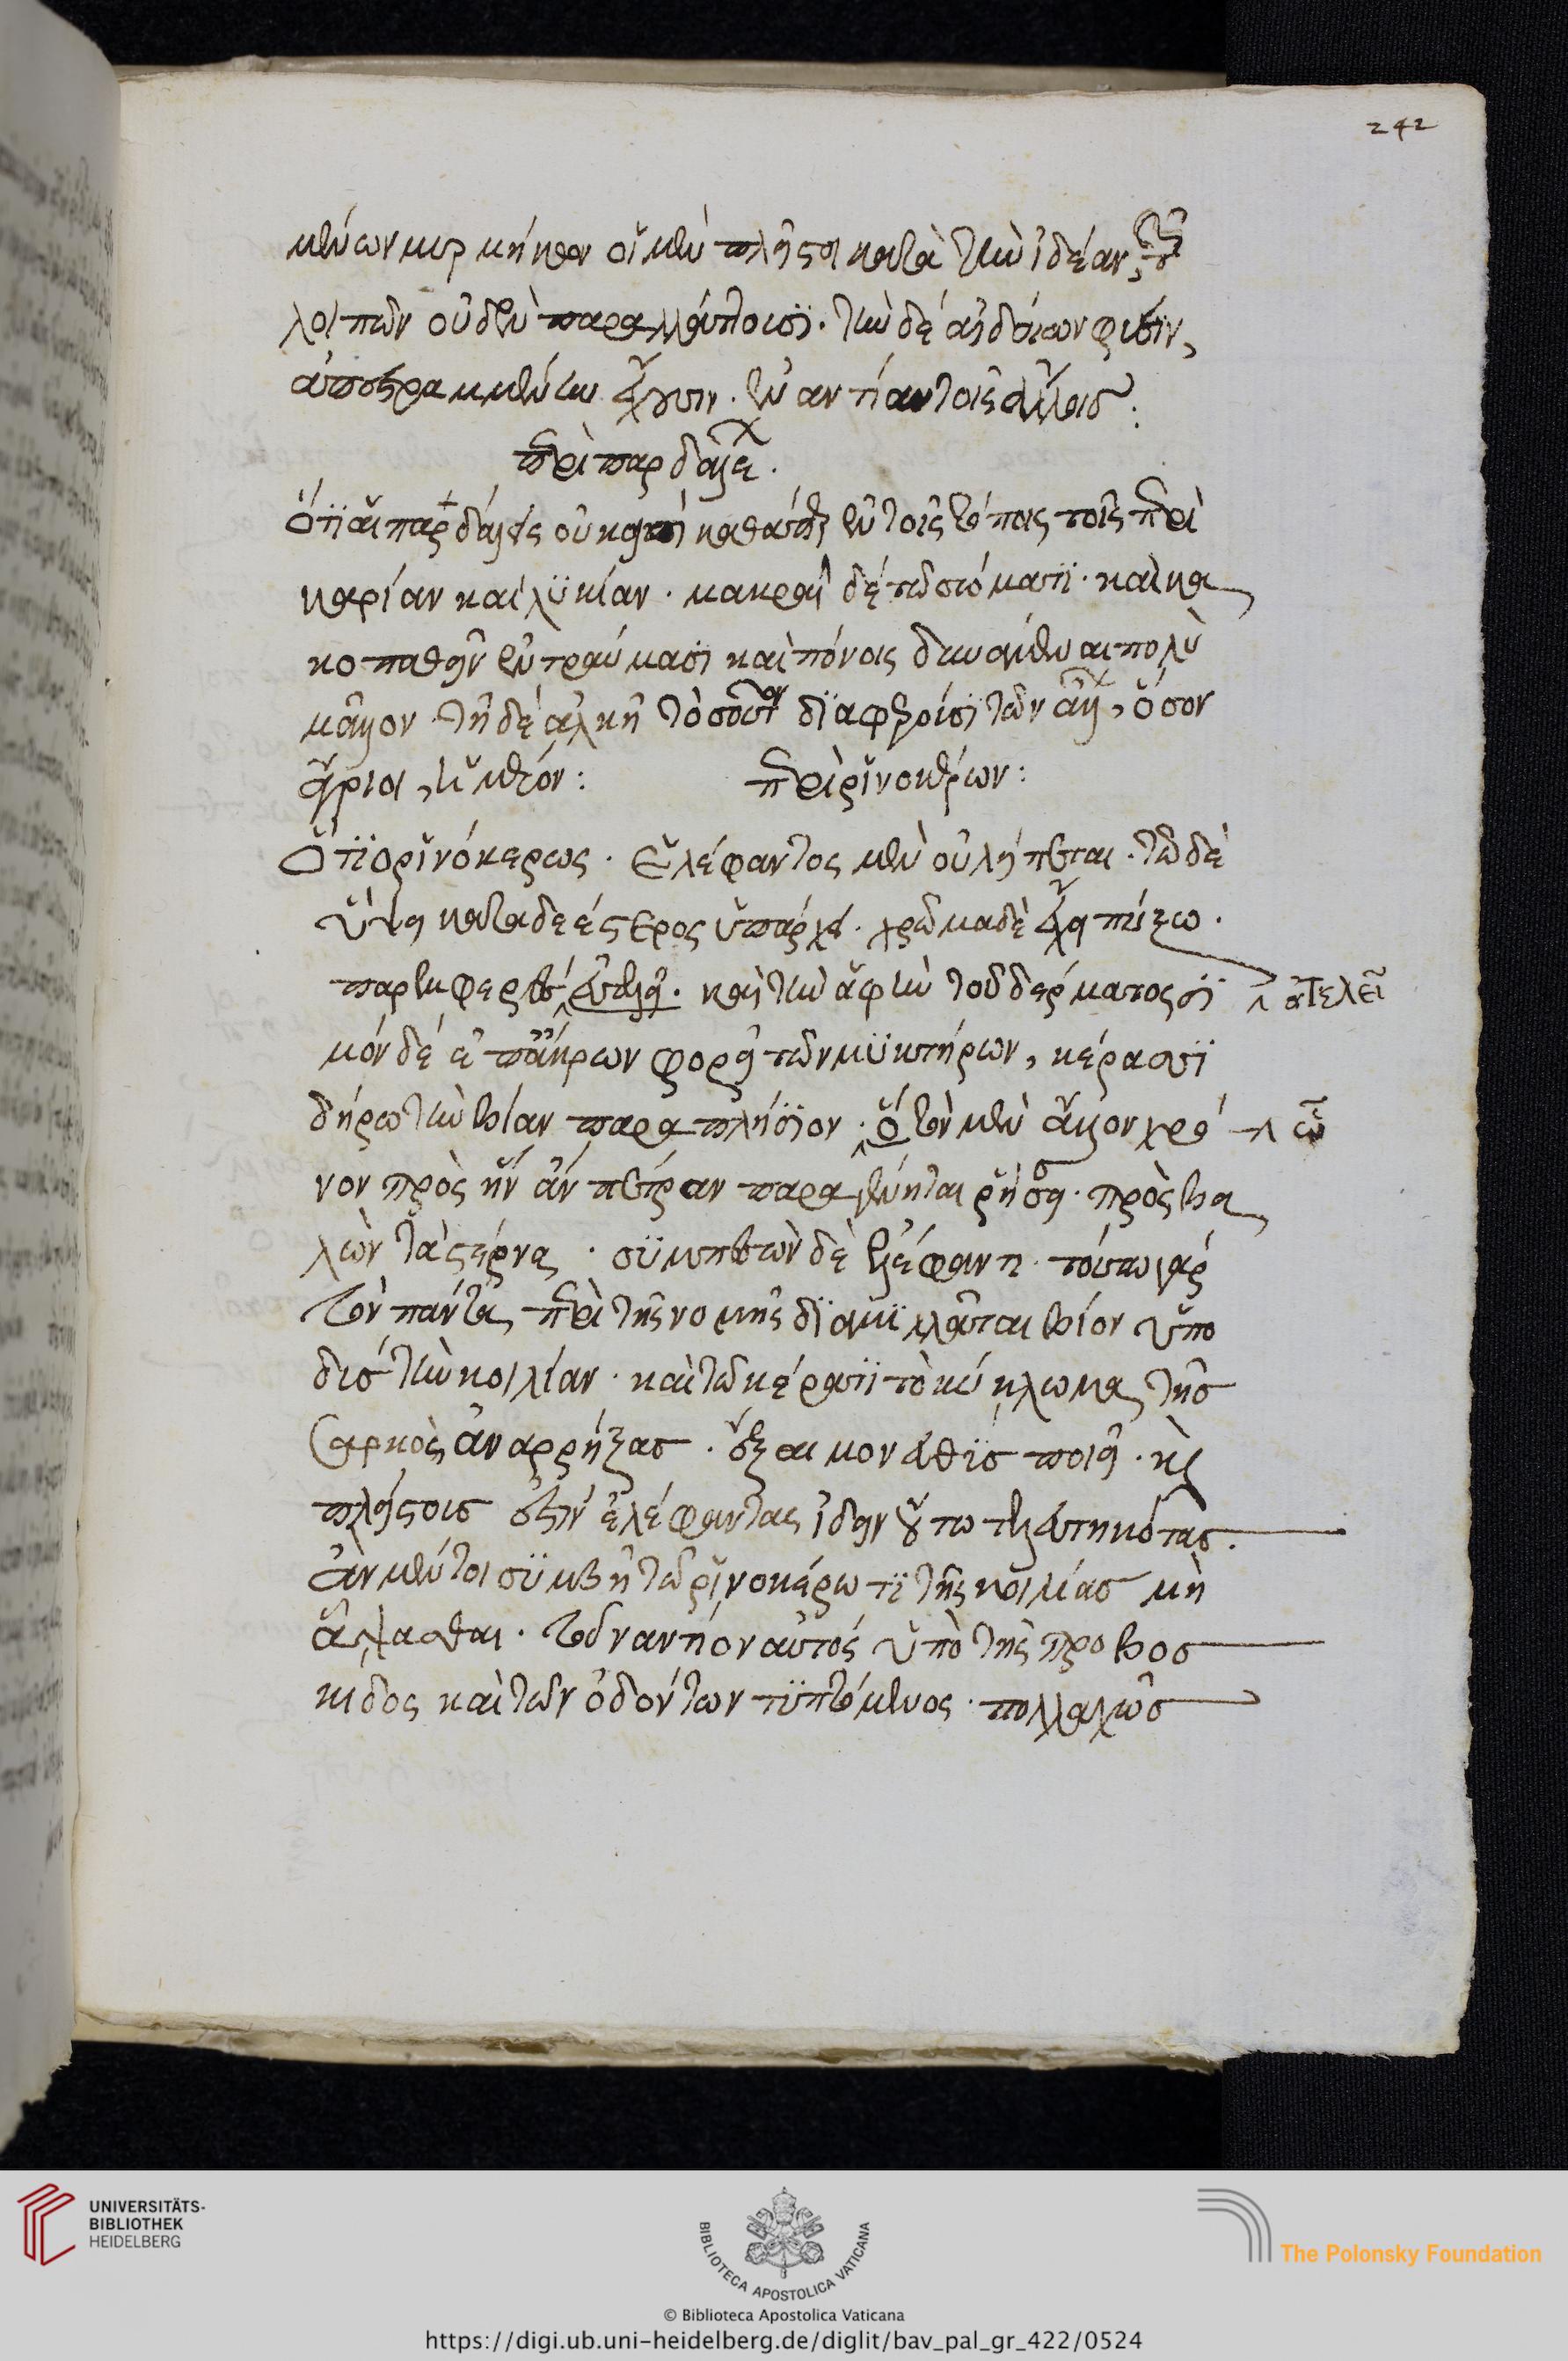 242
μένων μυρμήκων οἳ μὲν πλεῖστοι κατὰ τὴν ἰδέαν, τῶν
λοιπῶν οὐδὲν παραλλάττουσι. τὴν δὲ αἰδοίων φύσιν,
ἀπεστραμμένην ἔχουσιν. ἐναντίαν τοῖς ἄλλοις:
περὶ παρδάλεων.
ὅτι αἱ παρδάλεις οὐκ καθάπερ ἐν τοῖς τόποις τοῖς περὶ
καρίαν καὶ λυκίαν. μακραὶ δὲ τῶ σώματι. καὶ κα
κοπαθεῖν ἐν τραύμασι καὶ πόνοις δυνάμεναι πολὺ
μᾶλλον. τῆ δὲ ἀλκῆ τοσοῦτον διαφέρουσι τῶν ἄλλων, ὅσον
περὶ ῥινοκέρων:
Ὅτι ὁ ῥινόκερως. ἐλέφαντος μὲν οὐ λείπεται. τῶ δὲ
ὕψει καταδεέστερος ὑπάρχει. χρῶμα δὲ ἔχει πύξω.
παρεμφερὲς, εὐτελεῖ. καὶ τὴν ἁφὴν τοῦ δέρματος σι
ἀτελεῖ
μὸν δὲ ἐπ' ἄκρων φορεῖ τῶν μυκτήρων, κέρας σι
δήρω τὴν βίαν παραπλήσιον. ὃ τὸν μὲν ἄλλον χρό
ὧ
νον πρὸς ἣν ἂν πέτραν παραγένηται ῥήσσει. πρὸς βα
λὼν τὰ στέρνα. συμπεσὼν δὲ ἐλέφαντι. τούτω γὰρ
τὸν πάντα, περὶ τῆς νομῆς διαμιλλᾶται βίον ὑπο
δὺς τὴν κοιλίαν. καὶ τῶ κέρατι τὸ κύκλωμα τῆς
σαρκὸς ἀναρρήξας. ἔξαιμον εὐθὺς ποιεῖ. καὶ
πλείστους ἐστὶν ἐλέφαντας ἰδεῖν οὕτω τετελευτηκότας.
ἂν μέντοι συμβῆ τῶ ῥινοκέρωτι τῆς κοιλίας μὴ
ἅψασθαι. τοὐναντίον αὐτός ὑπὸ τῆς προβοσ
κίδος καὶ τῶν ὀδόντων τυπτόμενος. πολλαχῶς
UNIVERSITÄTS-
BIBLIOTHEK
HEIDELBERG
BIBLIOTECA APOSTOLICA VATICANA
The Polonsky Foundation
© Biblioteca Apostolica Vaticana
https://digi.ub.uni-heidelberg.de/diglit/bav_pal_gr_422/0524